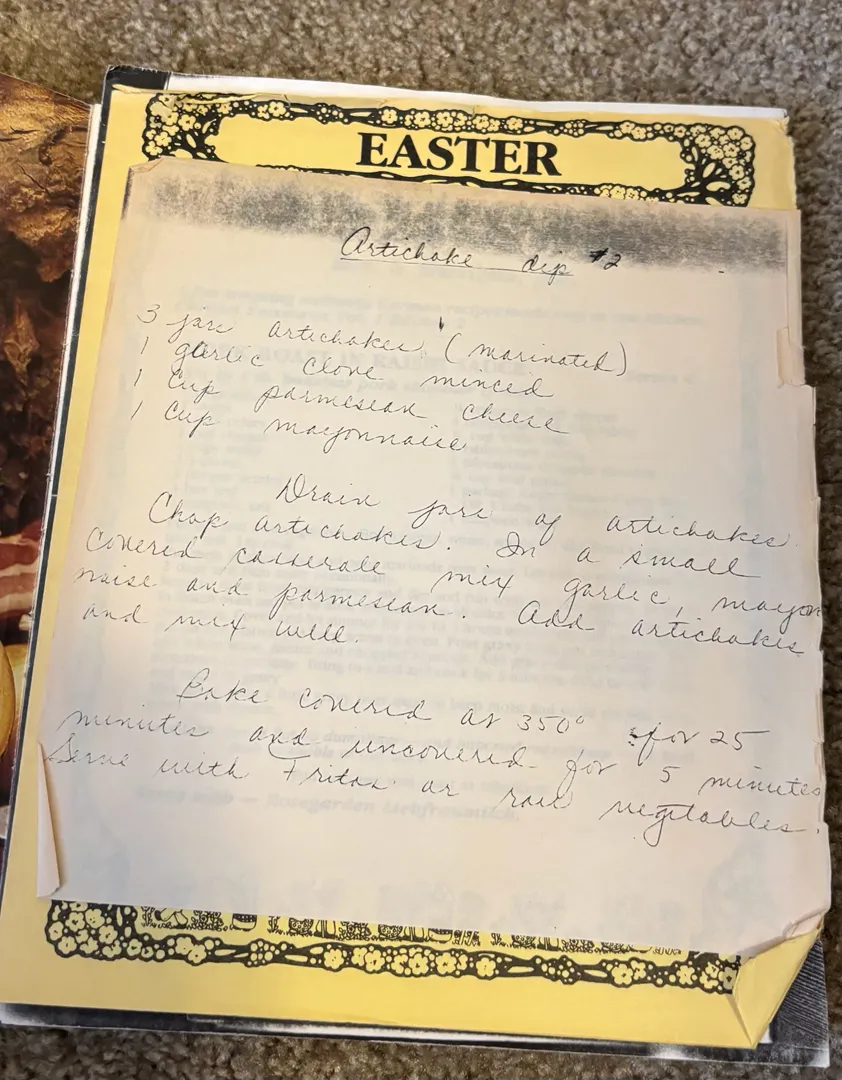 EASTER
Artichoke dip #2
3 jars artichokes (marinated)
1 garlic clove minced
1 Cup parmesean cheese
1 Cup mayonnaise
Drain jars of artichokes.
Chop artichokes. In a small
covered casserole mix garlic, mayon
naise and parmesean. Add artichokes
and mix well.
Bake covered at 350° for 25
minutes and uncovered for 5 minutes
Serve with Fritos or raw vegetables.